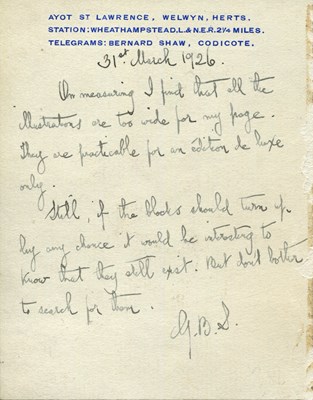 AYOT ST LAWRENCE, WELWYN, HERTS.
STATION: WHEATHAMPSTEAD. L. & N.E.R. 2¼ MILES.
TELEGRAMS: BERNARD SHAW, CODICOTE.
31st March 1926.
On measuring I find that all the
illustrations are too wide for my page.
They are practicable for an édition de luxe
only.
Still, if the blocks should turn up
by any chance it would be intresting to
know that they still exist. But dont bother
to search for them.
G.B.S.